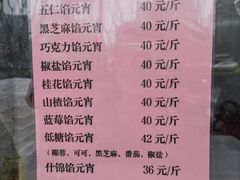 五仁馅元宵 40 元/斤
黑芝麻馅元宵 40 元/斤
巧克力馅元宵 40 元/斤
椒盐馅元宵 40 元/斤
桂花馅元宵 40 元/斤
山楂馅元宵 40 元/斤
蓝莓馅元宵 40 元/斤
低糖馅元宵 42 元/斤
(椰蓉、可可、黑芝麻、番茄、椒盐)
什锦馅元宵 36 元/斤